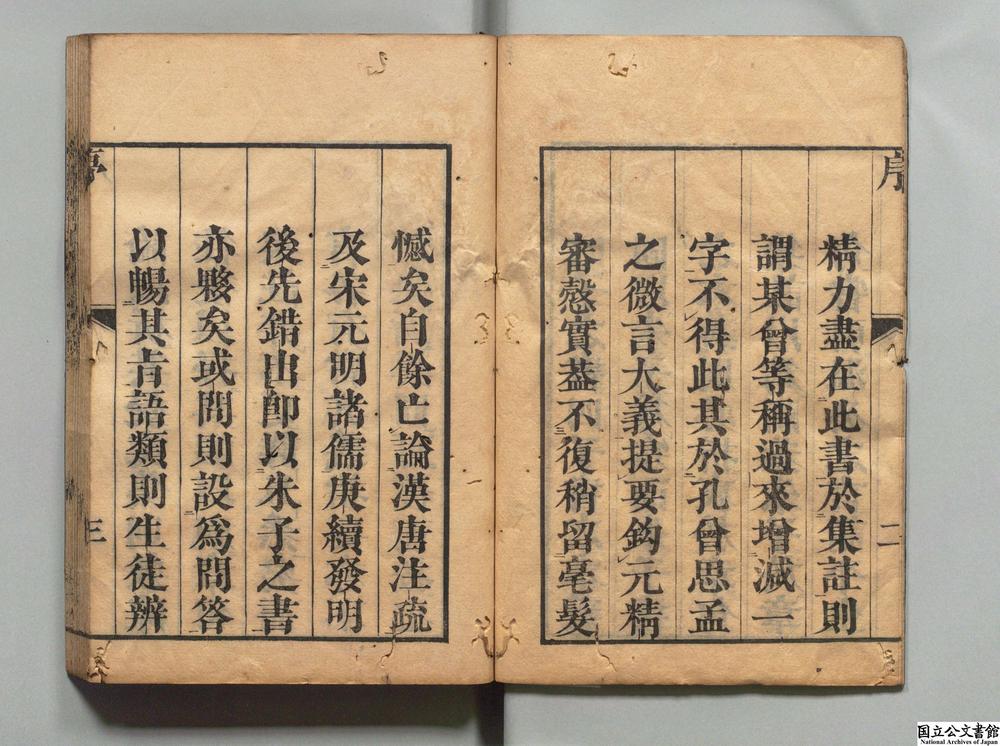 序
精力盡在此書於集註則
謂某曾等稱過來增減一
字不得此其於孔曾思孟
之微言大義提要鈎元精
審慤實葢不復稍留毫髮
二
憾矣自餘亡論漢唐注疏
及宋元明諸儒庚續發明
後先錯出卽以朱子之書
亦夥矣或問則設爲問答
以暢其旨語類則生徒辨
三
国立公文書館
National Archives of Japan